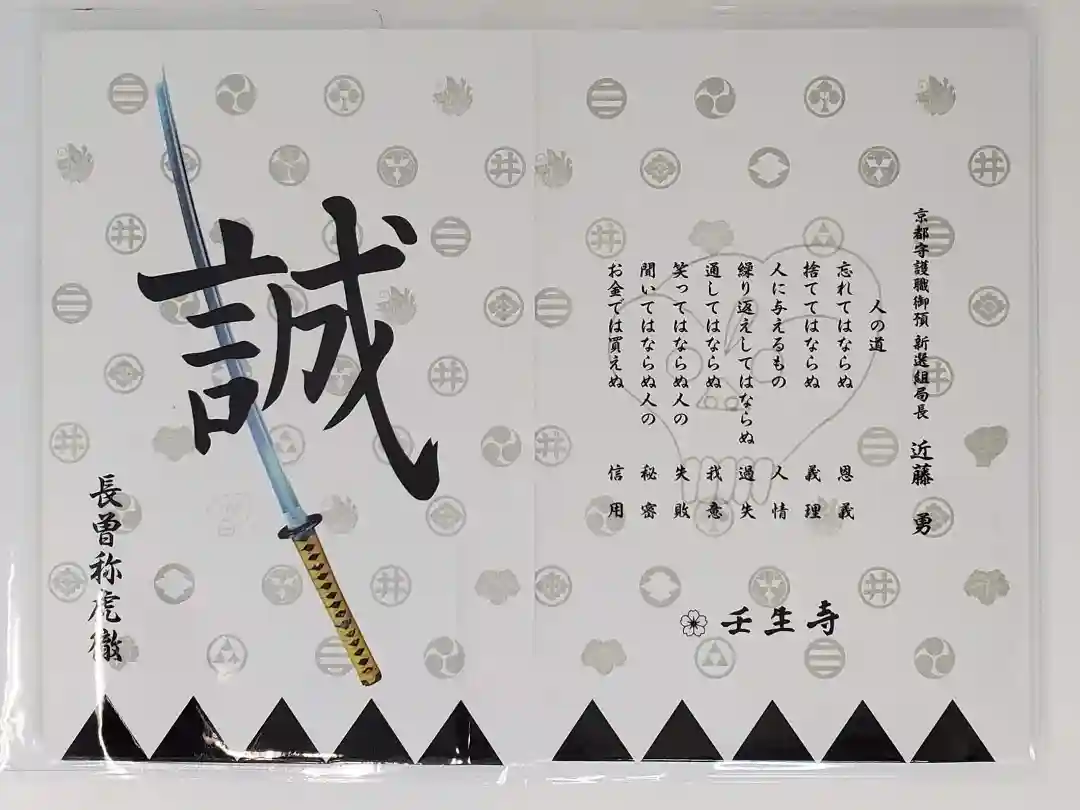 京都守護職御預 新選組局長 近藤 勇
人の道
忘れてはならぬ 恩義
捨ててはならぬ 義理
人に与えるもの 人情
繰り返えしてはならぬ 過失
通してはならぬ 我意
笑ってはならぬ人の 失敗
聞いてはならぬ人の 秘密
お金では買えぬ 信用
壬生寺
誠
長曽称虎徹